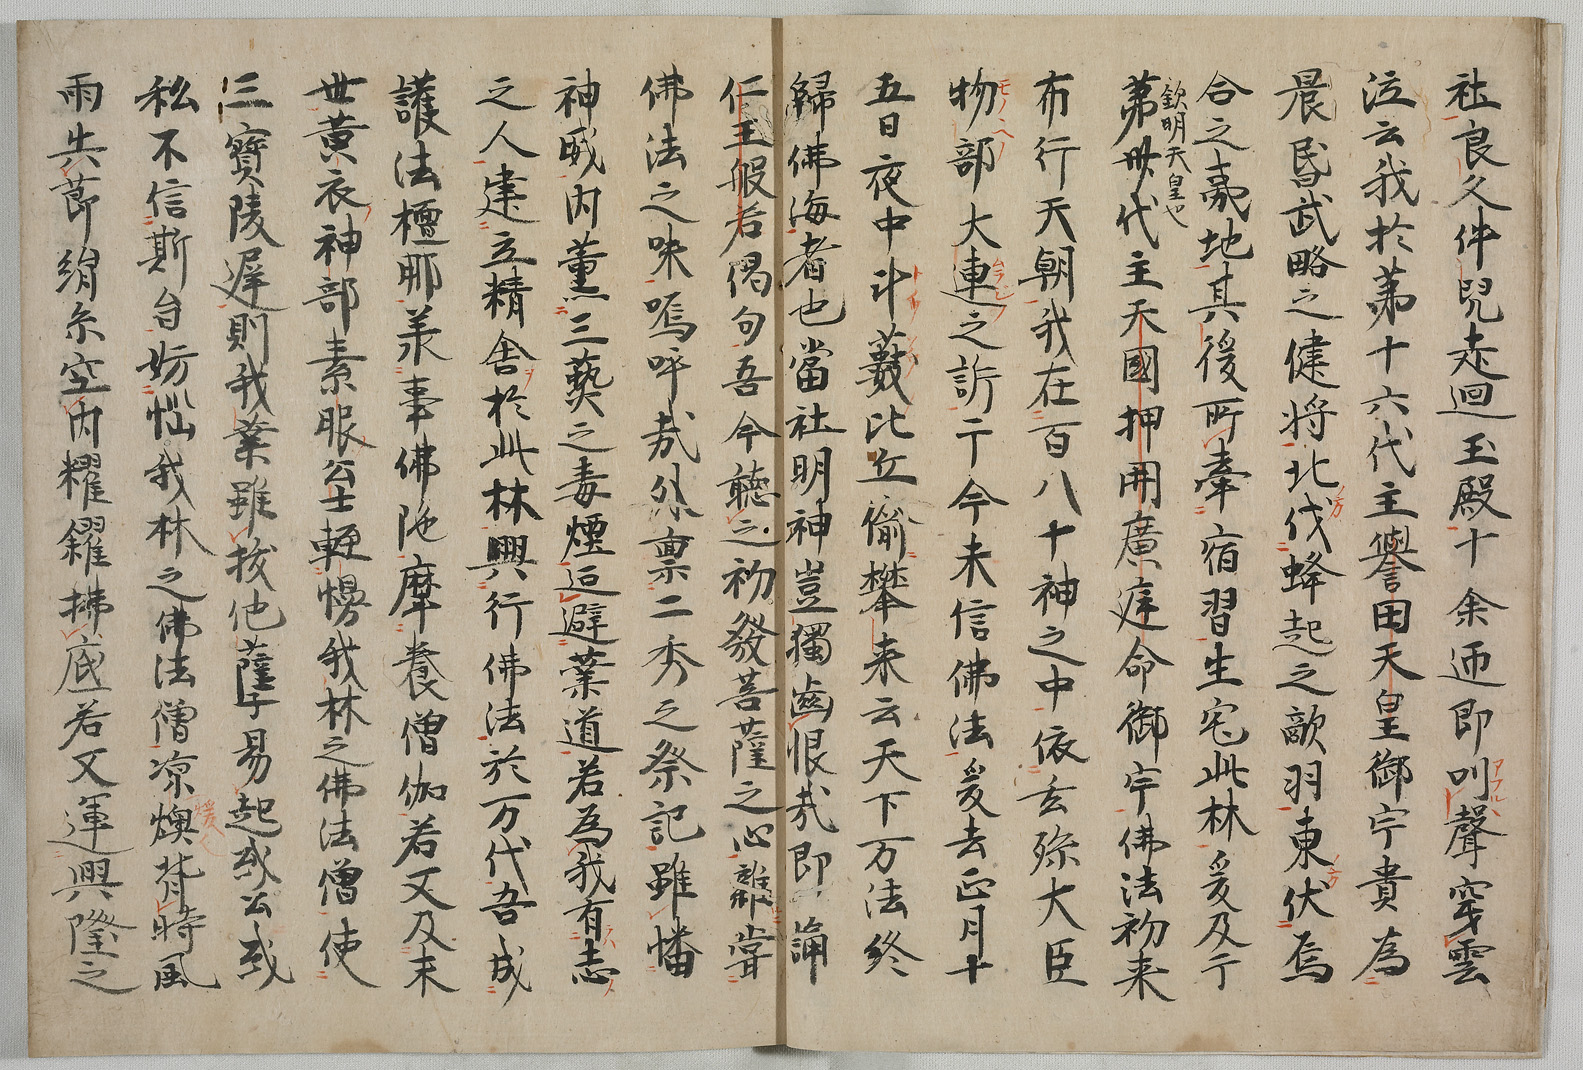 社良久件児走迴玉殿十余迊即叫聲穿雲
泣云我於第十六代主譽田天皇御宇貴為
晨昏武略之健将北伐蜂起之敵羽東伏焉
合之毫地其後所牽宿習生宅此林爰及于
第卅代主天國押開廣庭命御宇佛法初来
欽明天皇也
布行天朝我在百八十神之中依玄孫大臣
物部大連之訴于今未信佛法爰去正月十
五日夜中斗藪比丘偷攀来云天下万法終
歸佛海者也當社明神豈獨齒恨哉即誦
仁王般若偈句吾今聴之初發菩薩之心離耶甞
佛法之味嗚呼哉外禀二季之祭記雖幡
神威内薫三藝之毒煙迯避業道若為我有志
之人建立精舍於此林興行佛法於万代吾成
護法檀那羕事佛陁摩養僧伽若又及末
世黄衣神部素服公士輕慢我林之佛法僧使
三寶陵遅則我業雖拔他薩易起或公或
私不信斯旨妨惱我林之佛法僧凉燠背時風
雨失節絹糸空内糶糴拂底若又運興隆之